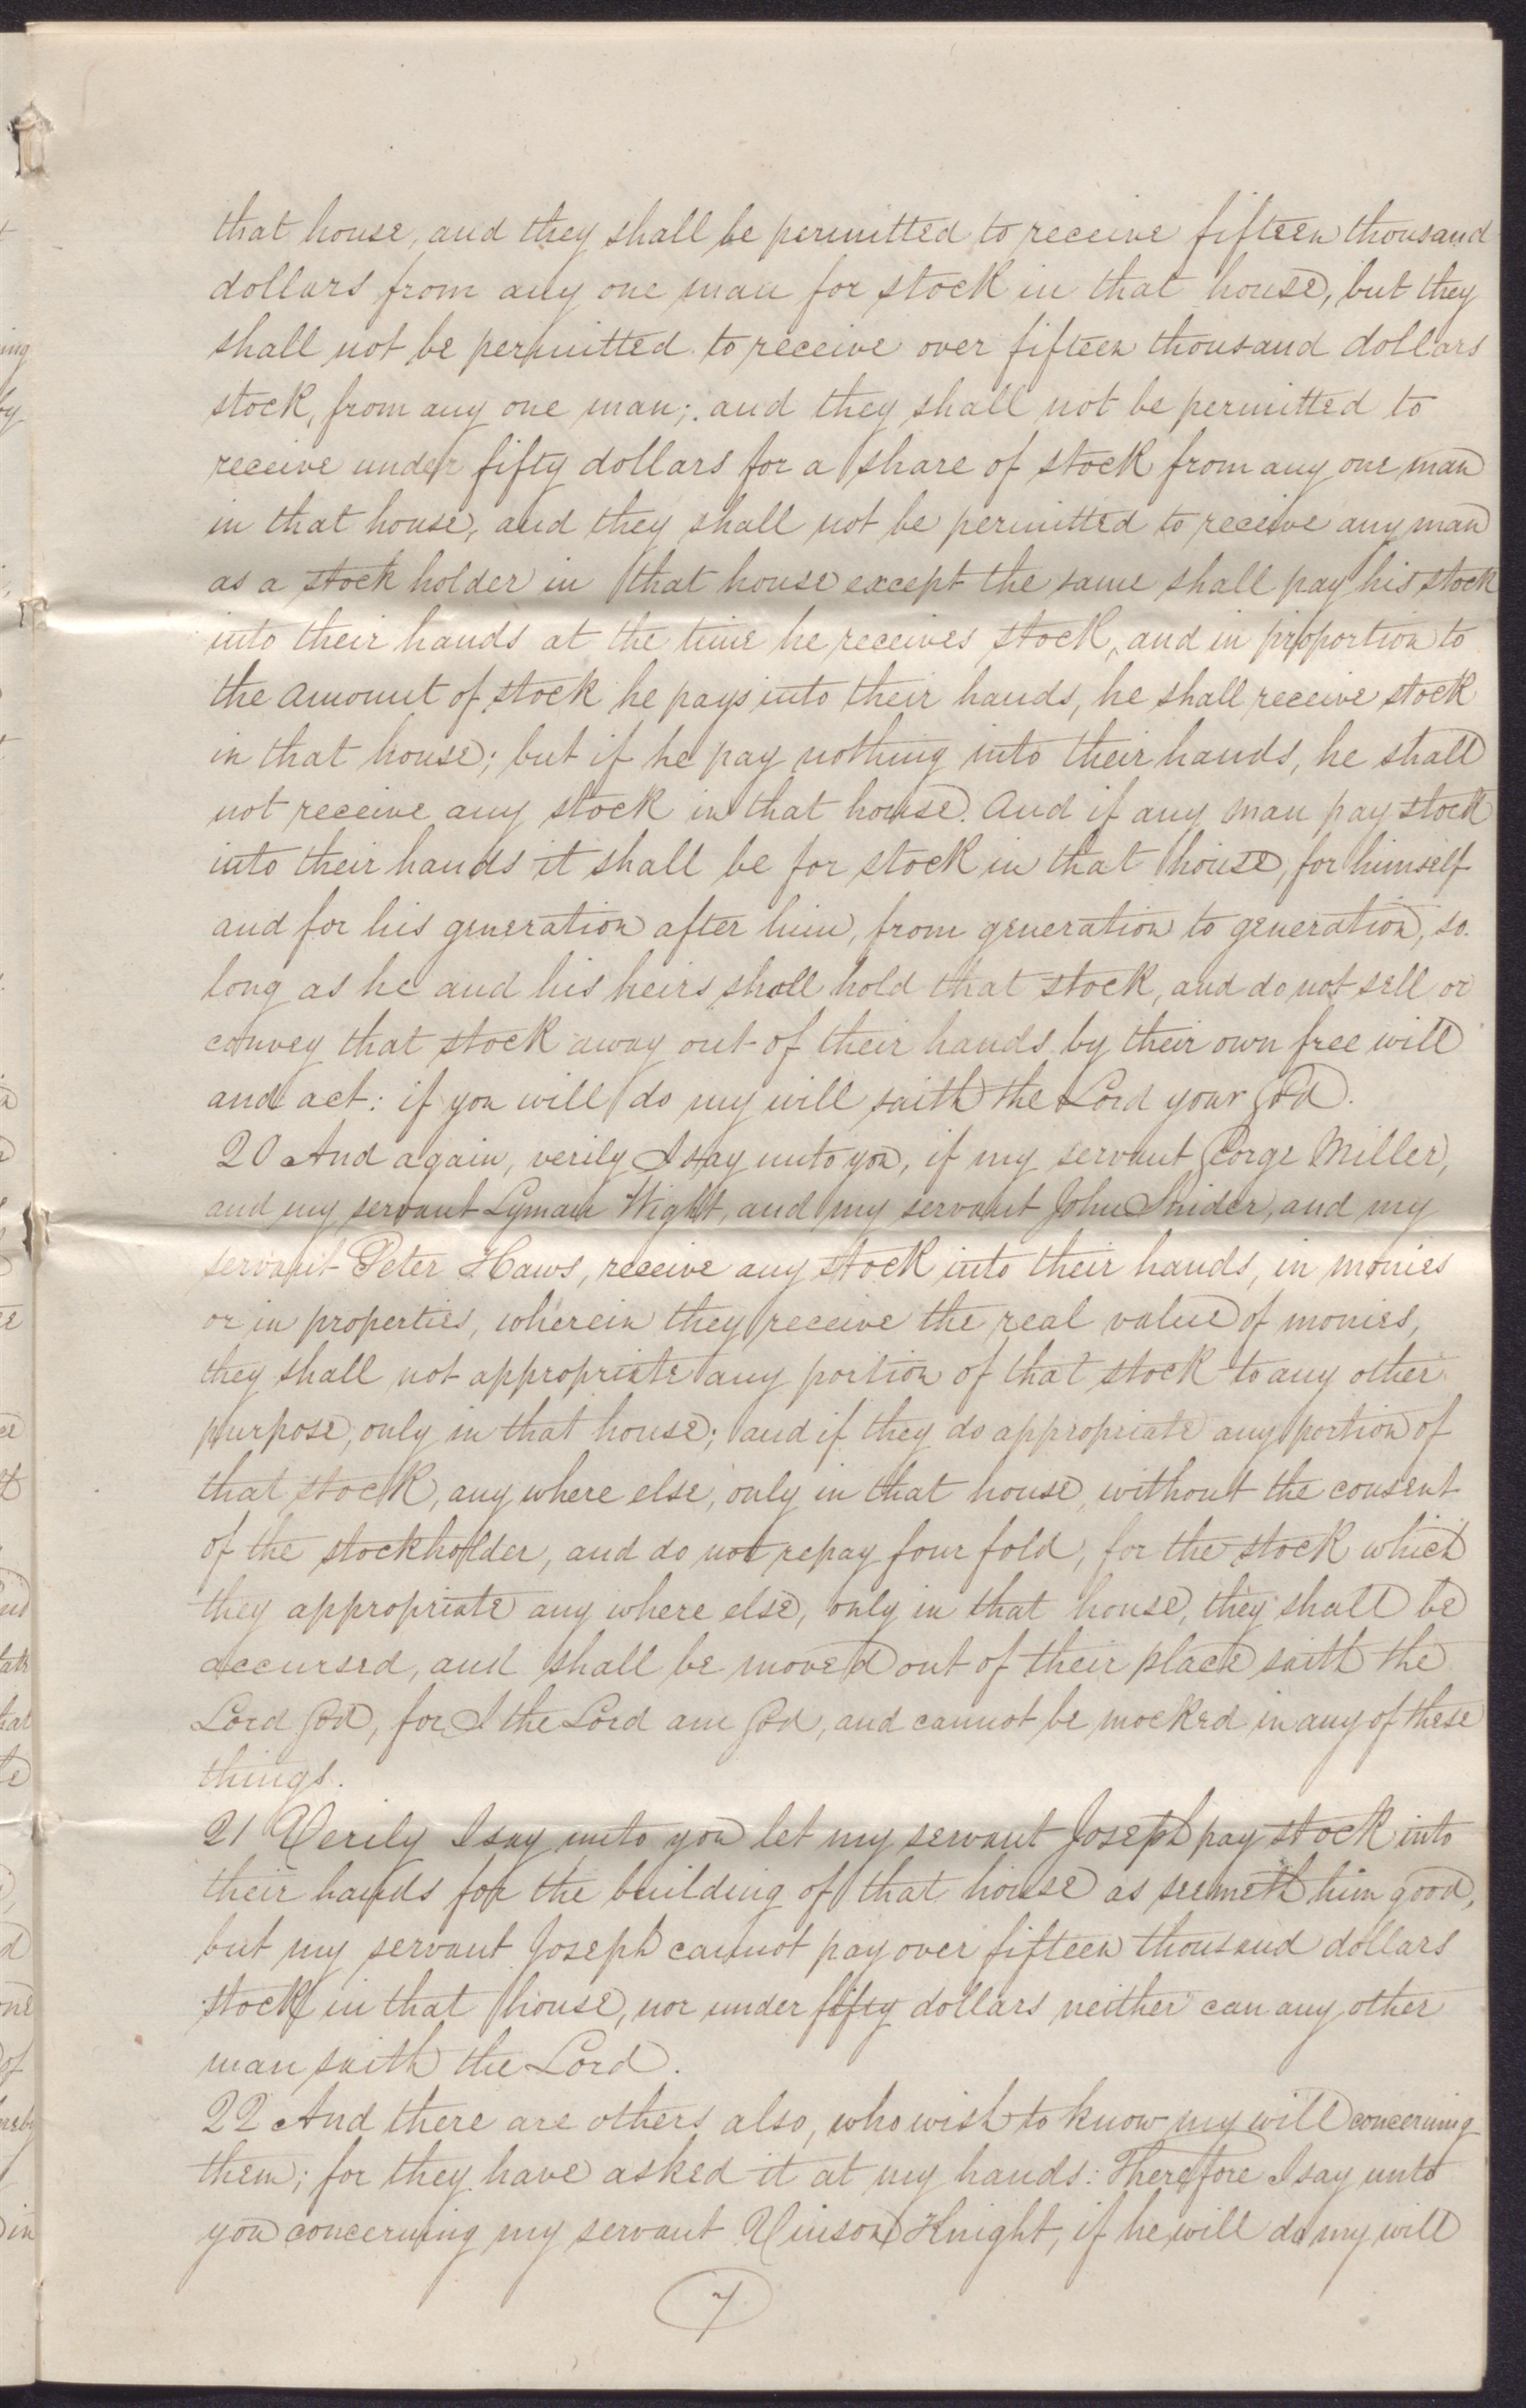 that house, and they shall be permitted to receive fifteen thousand
dollars from any one man for stock in that house, but they
shall not be permitted to receive over fifteen thousand dollars
stock, from any one man; and they shall not be permitted to
receive under fifty dollars for a share of stock from any one man
in that house, and they shall not be permitted to receive any man
as a stock holder in that house except the same shall pay his stock
into their hands at the time he receives stock, and in proportion to
the amount of stock he pays into their hands, he shall receive stock
in that house; but if he pay nothing into their hands, he shall
not receive any stock in that house. And if any man pay stock
into their hands it shall be for stock in that house, for himself
and for his generation after him, from generation to generation, so
long as he and his heirs shall hold that stock, and do not sell or
convey that stock away out of their hands by their own free will
and act: if you will do my will saith the Lord your God.
20 And again, verily I say unto you, if my servant George Miller,
and my servant Lyman Wight, and my servant John Snider, and my
servant Peter Haws, receive any stock into their hands, in monies
or in properties, wherein they receive the real value of monies,
they shall not appropriate any portion of that stock to any other
purpose, only in that house; and if they do appropriate any portion of
that stock, any where else, only in that house, without the consent
of the stockholder, and do not repay four fold, for the stock which
they appropriate any where else, only in that house, they shall be
accursed, and shall be moved out of their place saith the
Lord God, for I the Lord am God, and cannot be mocked in any of these
things.
21 Verily I say unto you let my servant Joseph pay stock into
their hands for the building of that house as seemeth him good,
but my servant Joseph cannot pay over fifteen thousand dollars
stock in that house, nor under fifty dollars neither can any other
man saith the Lord.
22 And there are others also, who wish to know my will concerning
them; for they have asked it at my hands: Therefore I say unto
you concerning my servant Vinson Knight, if he will do my will
7